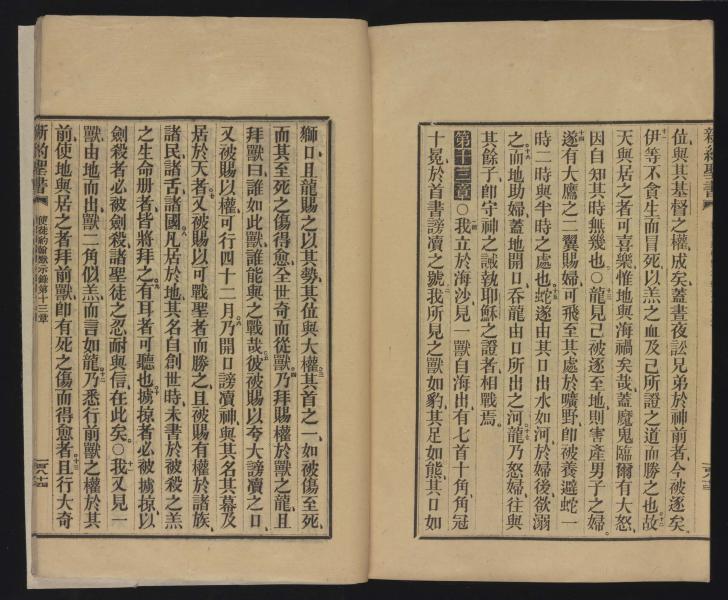 新約聖書
位、與其基督之權、成矣、蓋晝夜訟兄弟於神前者、今被逐矣、
伊等不貪生而冒死、以羔之血及己所證之道而勝之也、故
天與居之者可喜樂、惟地與海禍矣哉、蓋魔鬼臨爾有大怒、
因自知其時無幾也○龍見己被逐至地則害產男子之婦、
遂有大鷹之二翼賜婦、可飛至其處於曠野、卽被養避蛇一
時二時與半時之處也、蛇遂由其口出水如河於婦後欲溺
之、而地助婦、蓋地開口吞龍由口所出之河、龍乃怒婦往與
其餘子、卽守神之誡執耶穌之證者相戰焉。
第十三章○我立於海沙、見一獸自海出有七首十角、角冠
十冕、於首書謗瀆之號、我所見之獸如豹、其足如熊、其口如
獅口、且龍賜之以其勢其位與大權、其首之一、如被傷至死、
而其至死之傷得愈、全世奇而從獸、乃拜賜權於獸之龍、且
拜獸曰、誰如此獸、誰能與之戰哉、彼被賜以夸大謗瀆之口、
又被賜以權、可行四十二月、乃開口謗瀆神、與其名其幕及
居於天者、又被賜以可戰聖者而勝之、且被賜有權於諸族、
諸民諸舌諸國、凡居於地、其名自創世時、未書於被殺之羔
之生命册者、皆將拜之、有耳者可聽也、擄掠者必被擄掠、以
劍殺者必被劍殺、諸聖徒之忍耐與信、在此矣。○我又見一
獸由地而出、獸二角似羔、而言如龍、乃悉行前獸之權於其
前、使地與居之者拜前獸、卽有死之傷而得愈者、且行大奇
新約聖書
使徒約翰默示錄第十三章